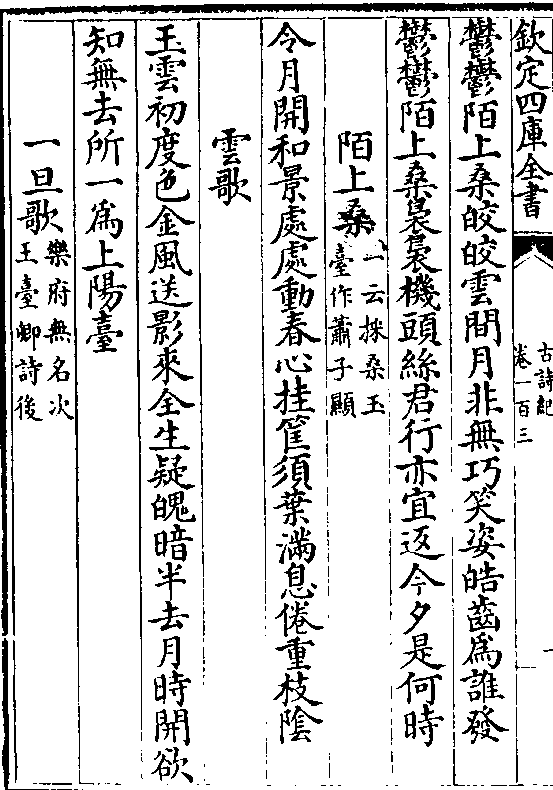 欽定四庫全書
古詩紀
卷一百三
鬱鬱陌上桑皎皎雲間月非無巧笑姿皓齒為誰發
鬱鬱陌上桑裊裊機頭絲君行亦宜返今夕是何時
陌上桑一云採桑玉
臺作蕭子顯
令月開和景處處動春心挂筐須葉滿息倦重枝陰
雲歌
玉雲初度色金風送影來全生疑魄暗半去月時開欲
知無去所一為上陽臺
一旦歌樂府無名次
王臺卿詩後